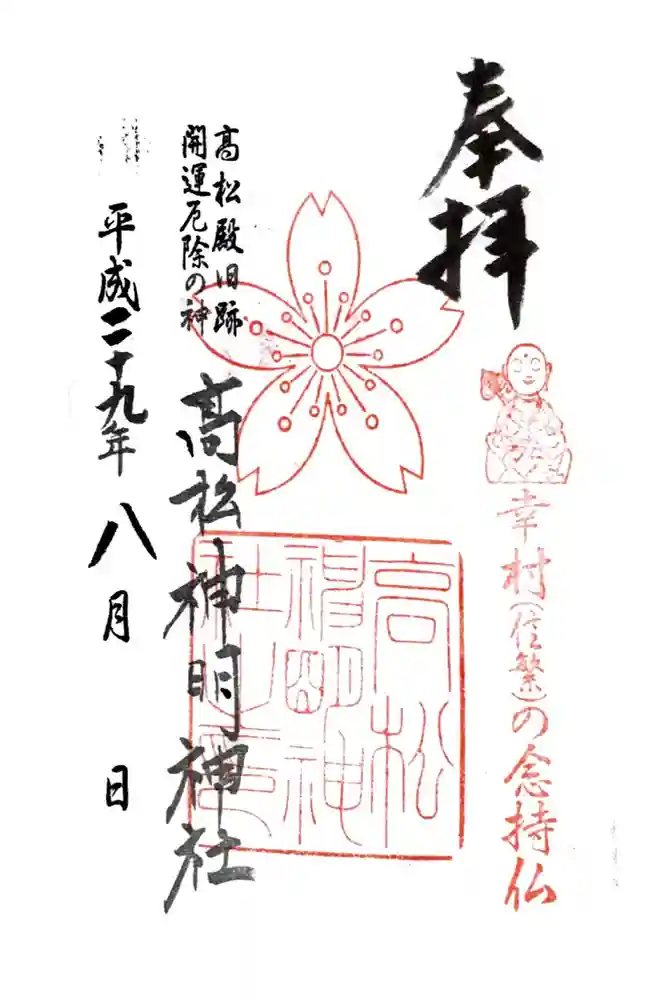 奉拝
幸村(信繁)の念持仏
高松
神明神
社之印
高松殿旧跡
開運厄除の神
高松神明神社
平成二十九年八月 日